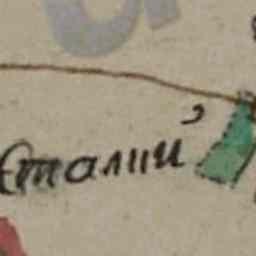 Єталии